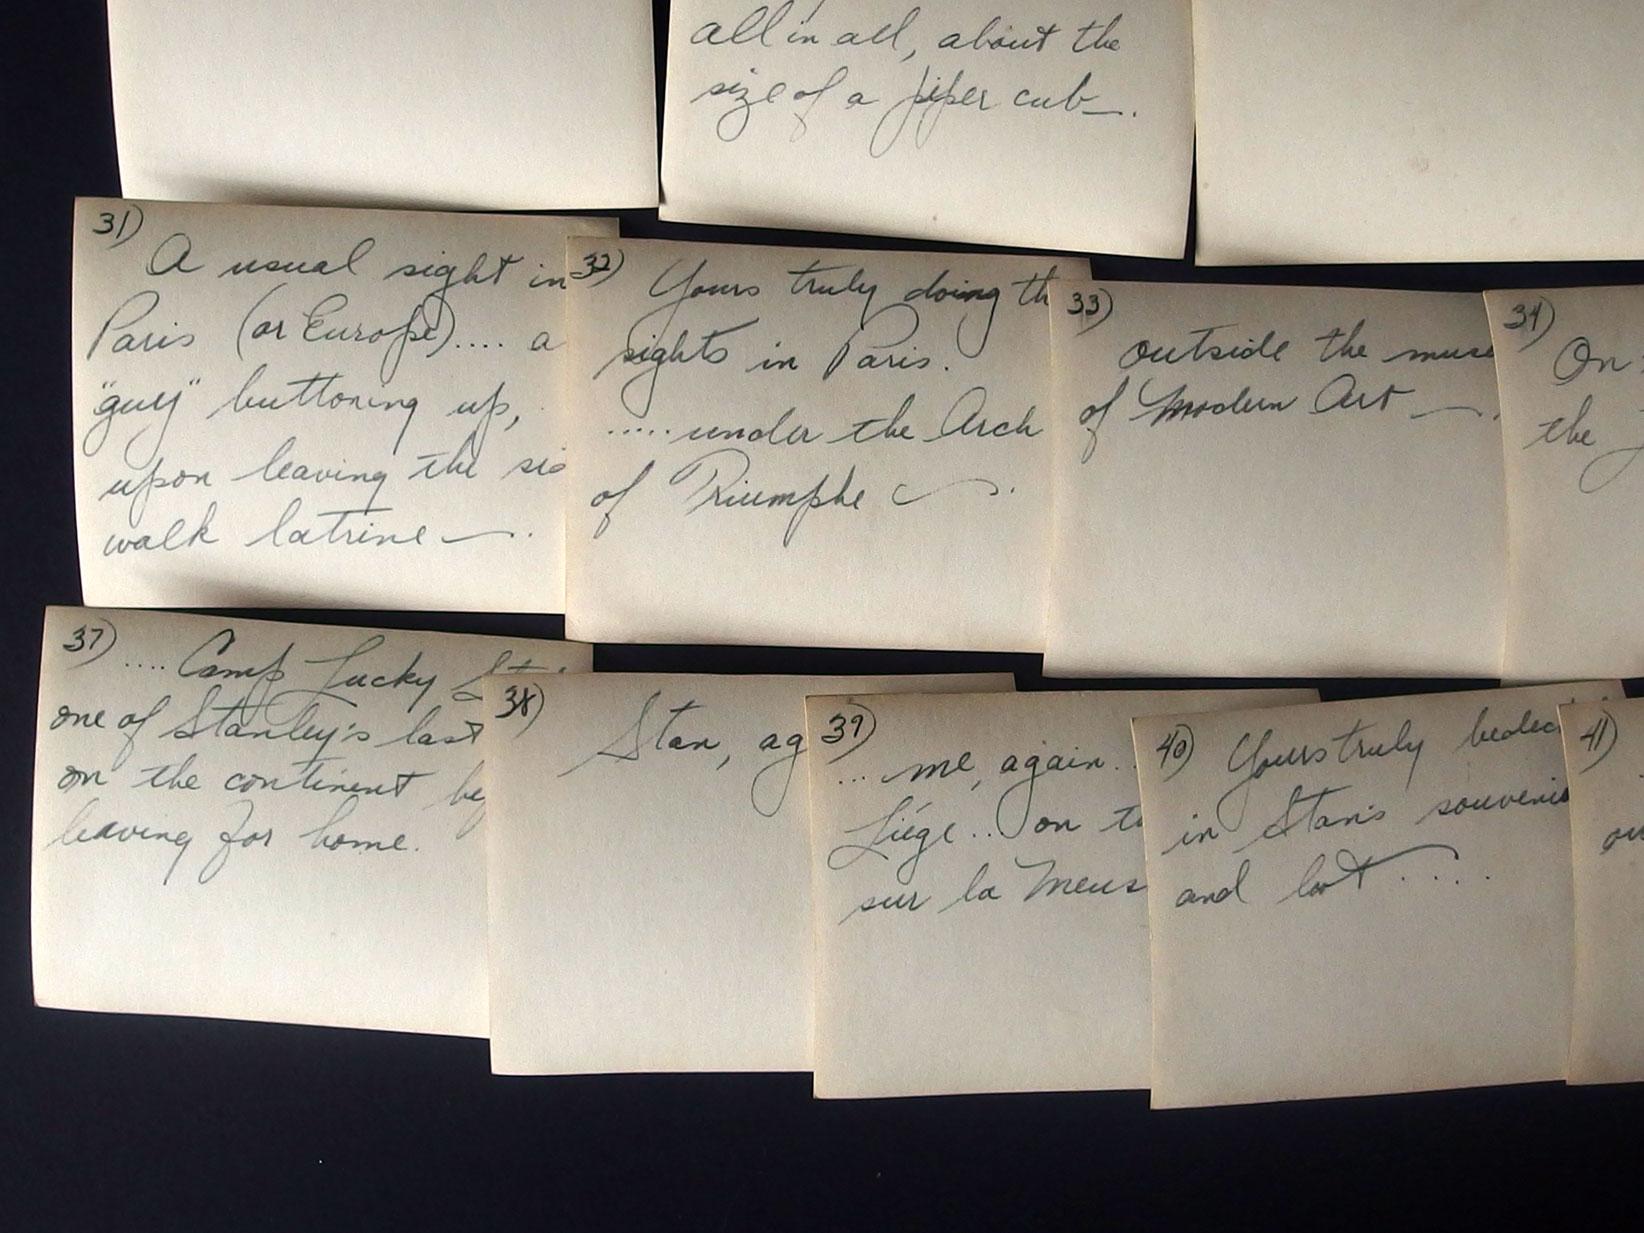 all in all, about the
size of a piper cub—.
31)
A usual sight in
Paris (or Europe).... a
"guy" buttoning up,
upon leaving the
walk latrine —.
32)
Yours truly doing
sights in Paris.
.....under the Arch
of Triumphe —.
33)
outside the
of Modern Art —.
34)
On
the
37)
.... Camp Lucky
one of Stanley's last
on the continent
leaving for home.
38)
Stan,
39)
... me, again..
Liége... on
sur la
40)
Yours truly
in Stan's
and loot ....
41)